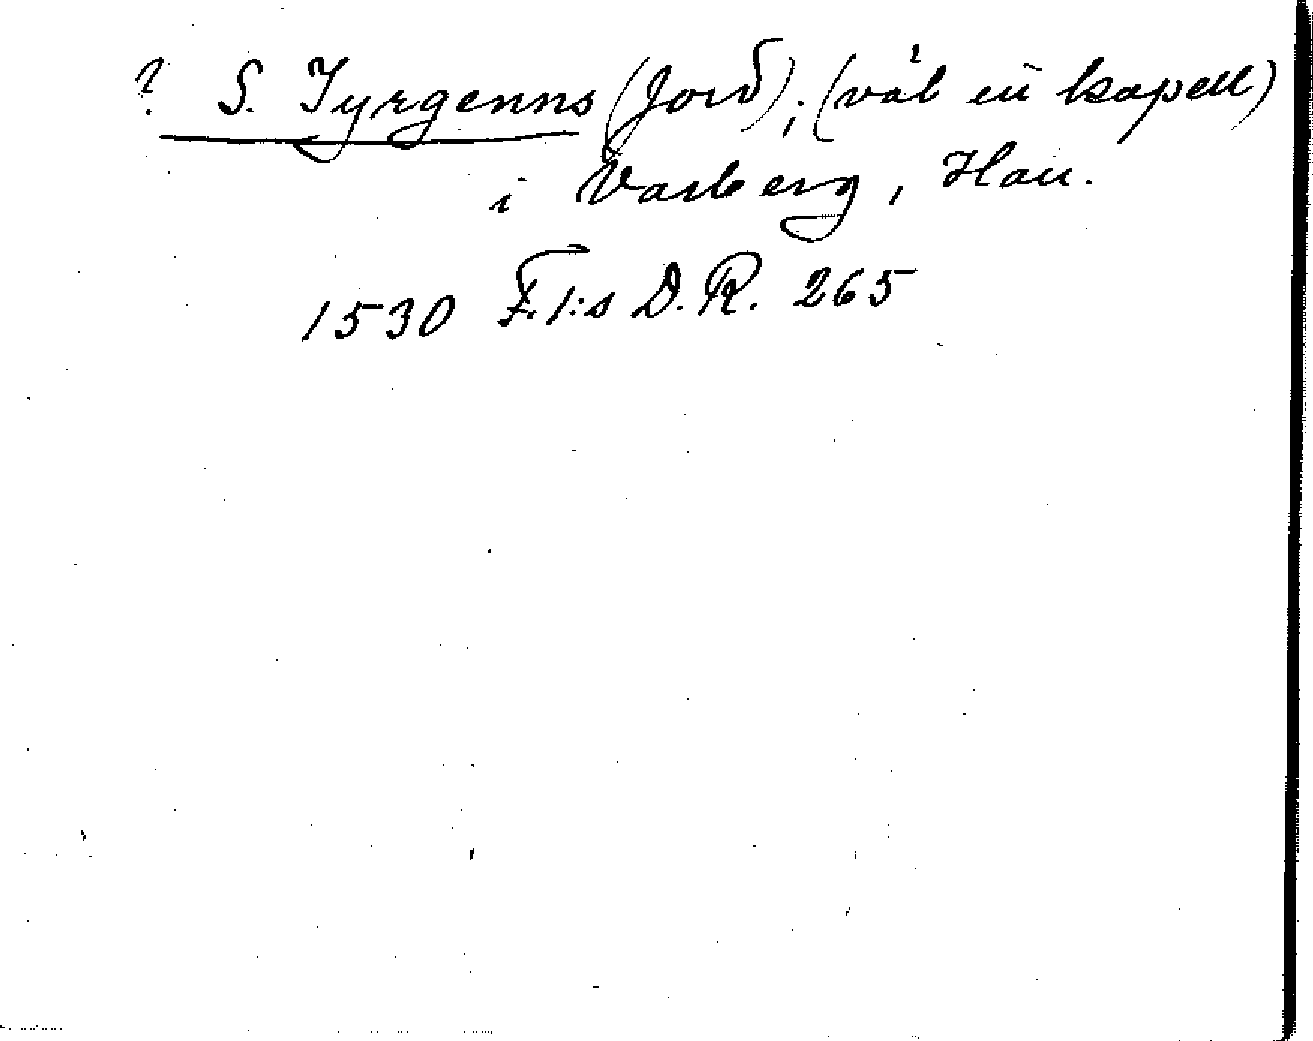 ? S. Jyrgenns (Jord); (väl en kapell)
i Varberg, Hall.
1530 F. I:s D. R. 265